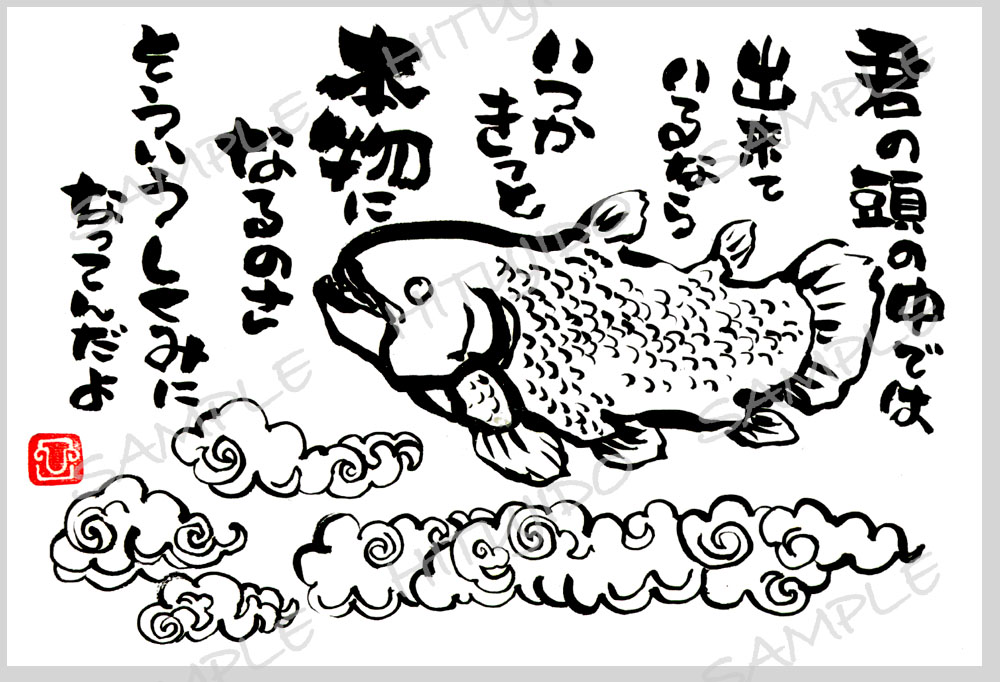 君の頭の中では
出来て
いるなら
いつか
きっと
本物に
なるのさ
そういうしくみに
なってんだよ
SAMPLE
HITUJIDO
SAMPLE
HITUJIDO
SAMPLE
HITUJIDO
SAMPLE
HITUJIDO
SAMPLE
SAMPLE
SAMPLE
SAMPLE